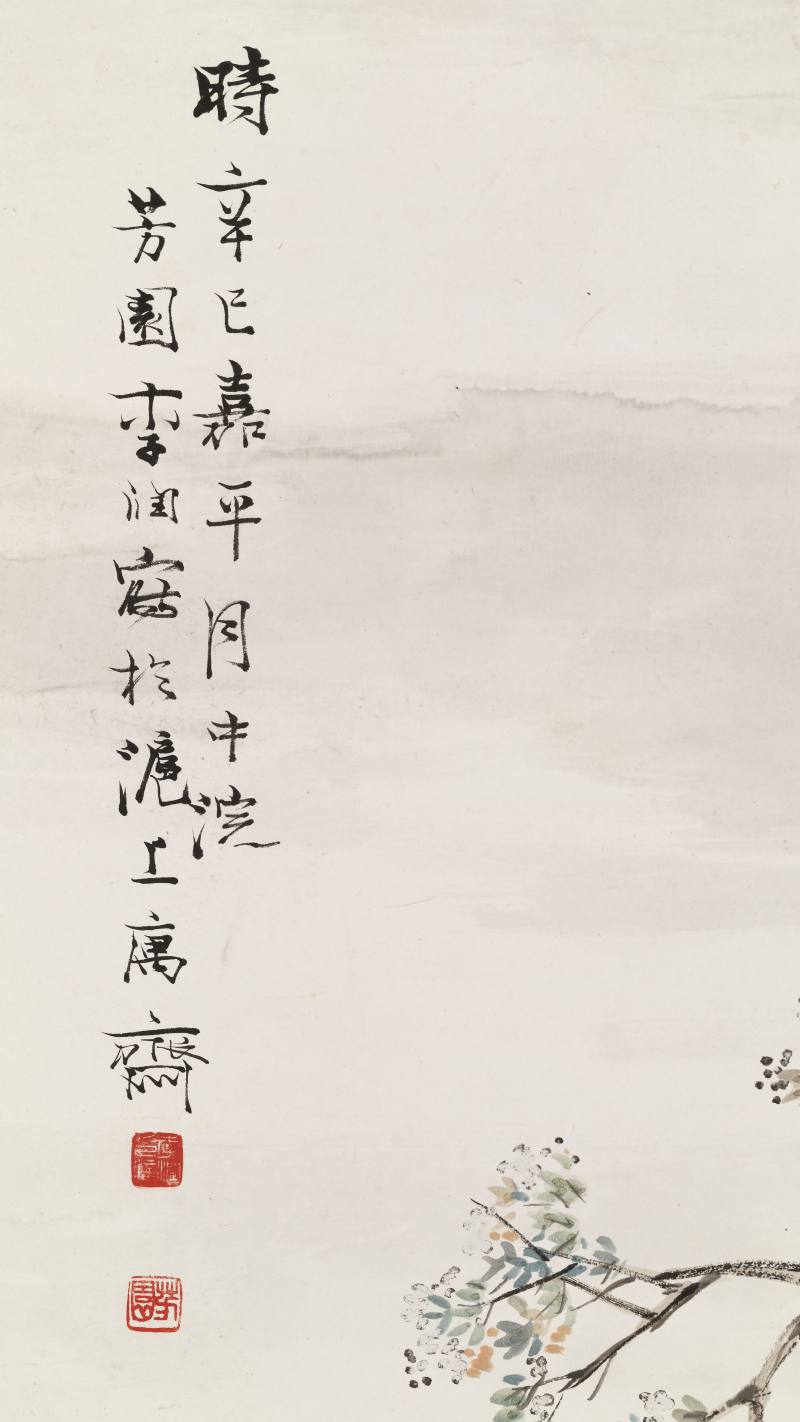 時辛巳嘉平月中浣
芳園李潤寫於滬上寓齋
芳園